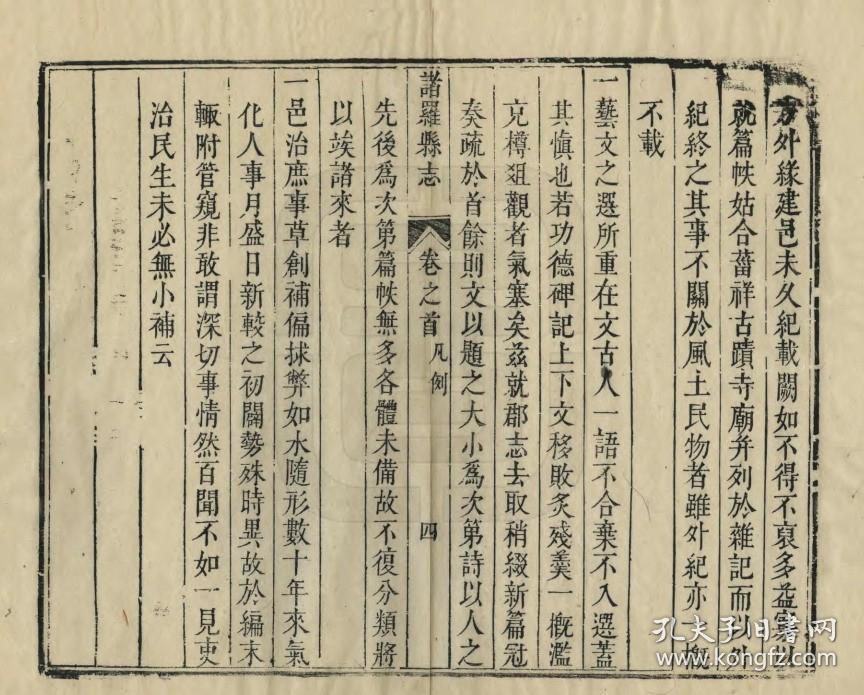 方外緣建邑未久紀載闕如不得不裒多益寡以
就篇帙姑合菑祥古蹟寺廟并列於雜記而以外
紀終之其事不關於風土民物者雖外紀亦一槪
不載
一藝文之選所重在文古人一語不合棄不入選蓋
其愼也若功德碑記上下文移敗炙殘羹一槪濫
克樽俎觀者氣塞矣茲就郡志去取稍綴新篇冠
奏疏於首餘則文以題之大小爲次第詩以人之
諸羅縣志 卷之首 凡例 四
先後爲次第篇帙無多各體未備故不復分類將
以竢諸來者
一邑治庶事草創補偏捄弊如水隨形數十年來氣
化人事月盛日新較之初闢勢殊時異故於編末
輒附管窺非敢謂深切事情然百聞不如一見吏
治民生未必無小補云
孔夫子旧書网
www.kongfz.com